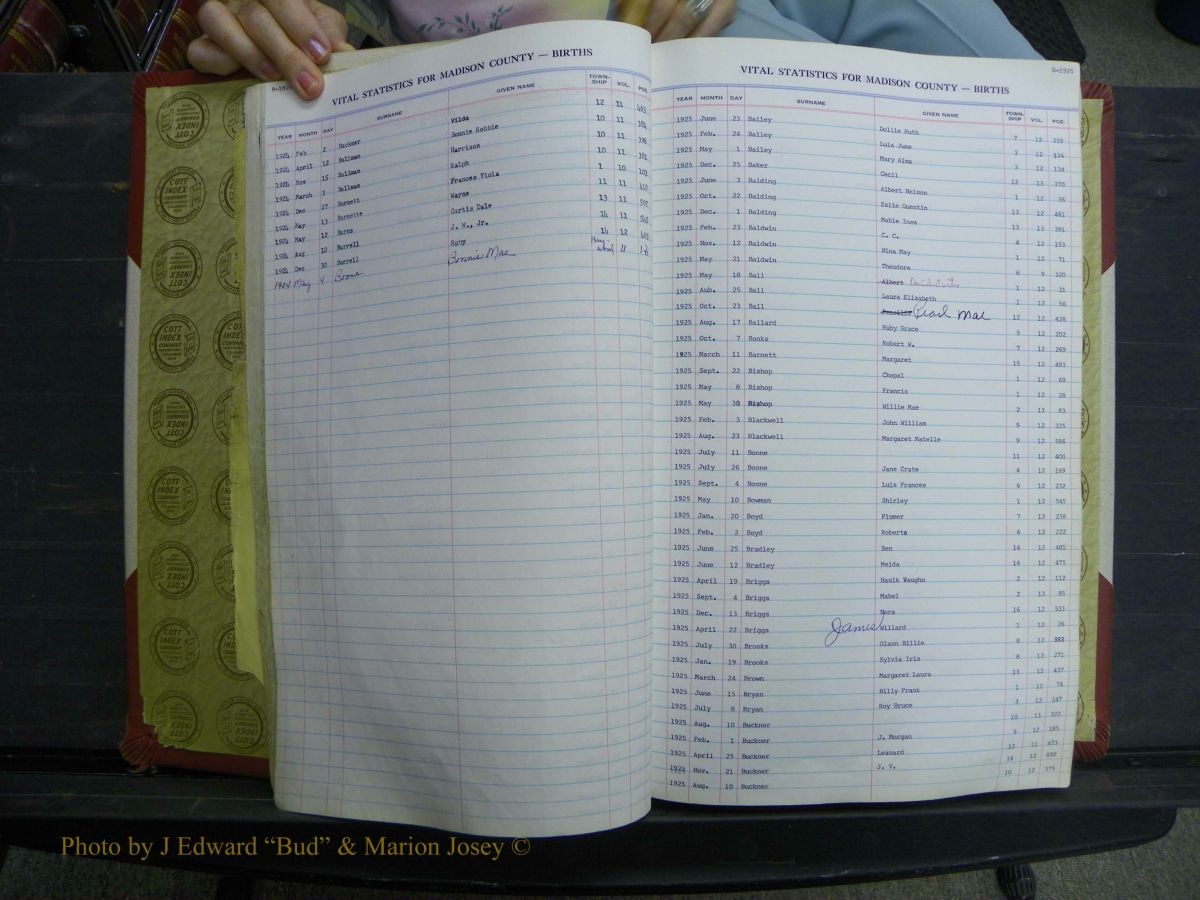 B-1924
VITAL STATISTICS FOR MADISON COUNTY — BIRTHS
YEAR MONTH DAY SURNAME GIVEN NAME TOWN-SHIP VOL. PGE.
1924 Feb. 2 Buckner Vilda 12 11
1924 April 12 Bullman Bonnie Robbie 10 11 384
1924 Nov 15 Bullman Harrison 10 11 396
1924 March 3 Bullman Ralph 10 11 381
1924 Dec 27 Burnett Frances Viola 1 10 103
1924 May 13 Burnette Wayne 11 11 410
1924 May 12 Burns Curtis Dale 13 11 507
1924 Aug 10 Burrell J. W., Jr. 14 11
1924 Dec. 30 Burrell Ruby 14 12
1924 May 4 Boone Bonnie Mae Hay-wood 11
B-1925
VITAL STATISTICS FOR MADISON COUNTY — BIRTHS
YEAR MONTH DAY SURNAME GIVEN NAME TOWN-SHIP VOL. PGE.
1925 June 23 Bailey Dollie Ruth 7 12 259
1925 Feb. 24 Bailey Lula June 3 12 124
1925 May 1 Bailey Mary Alma 3 12 134
1925 Dec. 25 Baker Cecil 12 13 370
1925 June 3 Balding Albert Nelson 1 12 36
1925 Oct. 22 Balding Eslie Quentin 13 12 461
1925 Dec. 1 Balding Mabie Inez 13 13 391
1925 Feb. 23 Baldwin C. C. 4 12 153
1925 Nov. 12 Baldwin Nina May 1 12 71
1925 May 21 Baldwin Theodore 6 9 320
1925 May 18 Ball Albert David Curtis 1 12 31
1925 Aub. 25 Ball Laura Elizabeth 1 12 56
1925 Oct. 23 Ball Pearl Mae 12 12 428
1925 Aug. 17 Ballard Ruby Grace 5 12 202
1925 Oct. 7 Banks Robert W. 7 12 269
1925 March 11 Barnett Margaret 15 12 493
1925 Sept. 22 Bishop Chapal 1 12 69
1925 May 8 Bishop Francis 1 12 28
1925 May 30 Bishop Willie Mae 2 13 83
1925 Feb. 3 Blackwell John William 9 12 325
1925 Aug. 23 Blackwell Margaret Matelle 9 12 586
1925 July 11 Boone 11 12 400
1925 July 26 Boone Jane Crate 4 12 169
1925 Sept. 4 Boone Luis Frances 6 12 232
1925 May 10 Bowman Shirley 1 12 545
1925 Jan. 20 Boyd Plumer 7 12 238
1925 Feb. 2 Boyd Roberta 6 12 222
1925 June 25 Bradley Ben 14 12 481
1925 June 12 Bradley Melda 14 12 475
1925 April 19 Briggs Haulk Vaughn 2 12 112
1925 Sept. 4 Briggs Mabel 2 13 85
1925 Dec. 13 Briggs Nora 16 12 533
1925 April 22 Briggs James Willard 1 12 26
1925 July 30 Brooks Glann Billie 8 12 383
1925 Jan. 19 Brooks Sylvia Iris 8 12 271
1925 March 24 Brown Margaret Laura 13 12 437
1925 June 15 Bryan Billy Frank 1 12 74
1925 July 8 Bryan Roy Bruce 3 12 147
1925 Aug. 10 Buckner 10 13 322
1925 Feb. 1 Buckner J. Morgan 3 12 185
1925 April 25 Buckner Leanard 12 12 473
1925 Nov. 21 Buckner J. V. 14 12 490
1925 Aug. 10 Buckner 10 12 375
COTT INDEX COMPANY COLUMBUS OHIO
Photo by J Edward “Bud” & Marion Josey ©